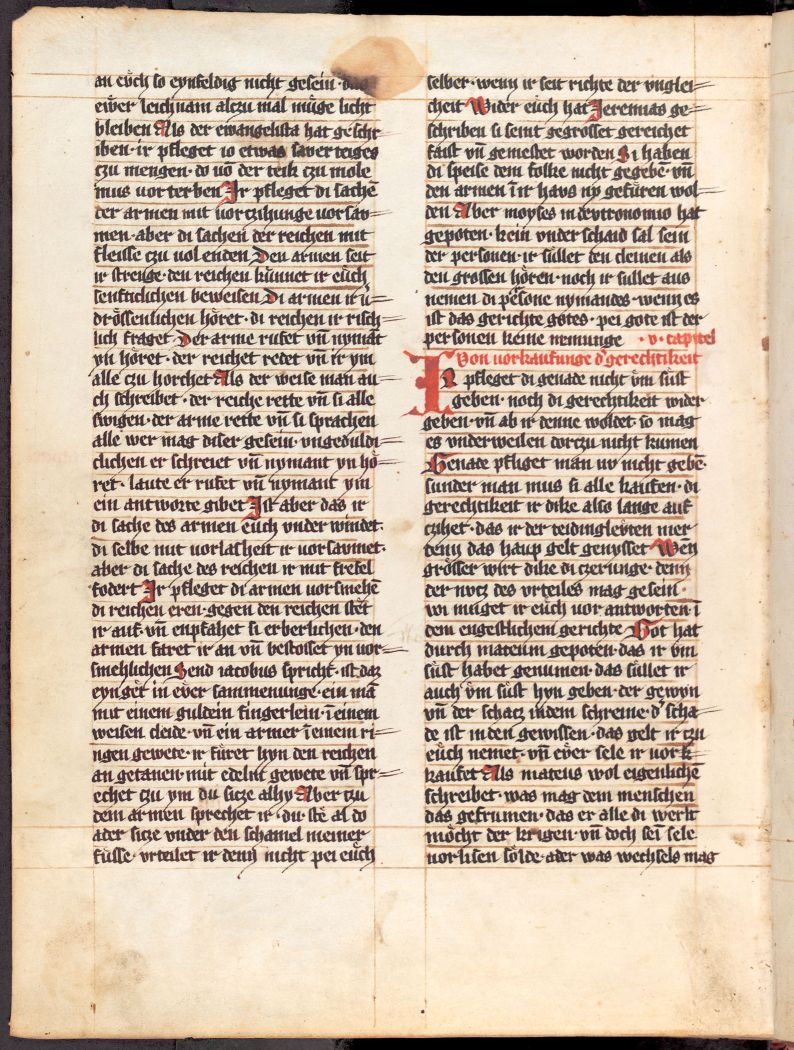 an eüch so eynfeldig nicht gesein · das
ewer leichnam alczu mal müge licht
bleiben Als der ewangelista hat geschr
iben · ir pfleget io etwas saverteiges
czu mengen · do uō der teik czu mole
mus uorterben Ir pfleget di sachē
der armen mit uorczihunge uorsav=
men · aber di sachen der reichen mit
fleisse czu uol enden Den armen seit
ir strenge · den reichen künnet ir eüch
senfticlichen beweisen Di armen ir ü=
drössenlichen höret · di reichen ir risch=
lich fraget Der arme rufet vn̄ nymāt
yn höret · der reichet redet vn̄ ir ym
alle czu horchet Als der weise man au=
ch schreibet · der reiche rette vn̄ si alle
swigen · der arme rette vn̄ si sprachen
alle wer mag diser gesein · vngeduldi=
clichen er schreiet vn̄ nymant yn hö=
ret · laute er rufet vn̄ nymant ym
ein antworte gibet Ist aber das ir
di sache des armen eüch vnder windet ·
di selbe mit uorlasheit ir uorsavmet ·
aber di sache des reichen ir mit frefel
fodert Ir pfleget di armen uorsmehē
di reichen eren · gegen den reichen stēt
ir auf · vn̄ enpfahet si erberlichen · den
armen faret ir an vn̄ bestosset yn uor=
smehlichen Send iacobus spricht · ist daz
eynger in ewer sammenunge · ein mā
mit einem guldein fingerlein · ī einem
weisen cleide · vn̄ ein armer ī einem ri=
ngen gewete · ir füret hyn den reichen
an getanen mit edelm gewete vn̄ spr=
echet czu ym du sicze alhy Aber czu
dem armen sprechet ir · du · ste al do
ader sicze vnder den schamel meiner
füsse · vrteilet ir denn nicht pei eüch
selber · wenn ir seit richte der vnglei=
cheit Wider eüch hat Jeremias ge=
schriben si seint gegrosset gereichet
faist vn̄ gemestet worden Si haben
di speise dem folke nicht gegebē · vn̄
den armen ī ir havs ny gefüren wol=
den Aber moyses in devtronomio hat
gepoten · kein vnder schaid sal sein
der personen · ir süllet den cleinen als
den grossen hören · noch ir sullet aus
nemen di persone nymandes · wenn es
ist das gerichte gotes · pei gote ist der
personen keine nemunge · v · capitel
Von uorkaufunge d' gerechtikeit
IR pfleget di genade nicht vm süst
geben · noch di gerechtikeit wider
geben · vn̄ ab ir denne woldet · so mag
es vnderweilen dorczu nicht kumen
Genade pfliget man nv nicht gebē ·
sunder man mus si alle kaufen · di
gerechtikeit ir dike also lange auf
czihet · das ir der teidingleüten mer
denn das haup gelt genysset Wen̄
grösser wirt dike di czerunge · denn
der nvcz des vrteiles mag gesein ·
wi müget ir eüch uor antworten ī
dem engestlichem gerichte Got hat
durch mateum gepoten · das ir vm
süst habet genumen · das süllet ir
auch vm süst hyn geben · der gewyn
vn̄ der schacz in dem schreine · d' scha=
de ist in den gewissen · das gelt ir czu
eüch nemet · vn̄ ewer sele ir uork=
kaufet Als mateus wol eigenlichē
schreibet · was mag dem menschen
das gefrumen · das er alle di werlt
möcht der krigen · vn̄ doch sei sele
uorlisen sölde · ader was wechsels mag